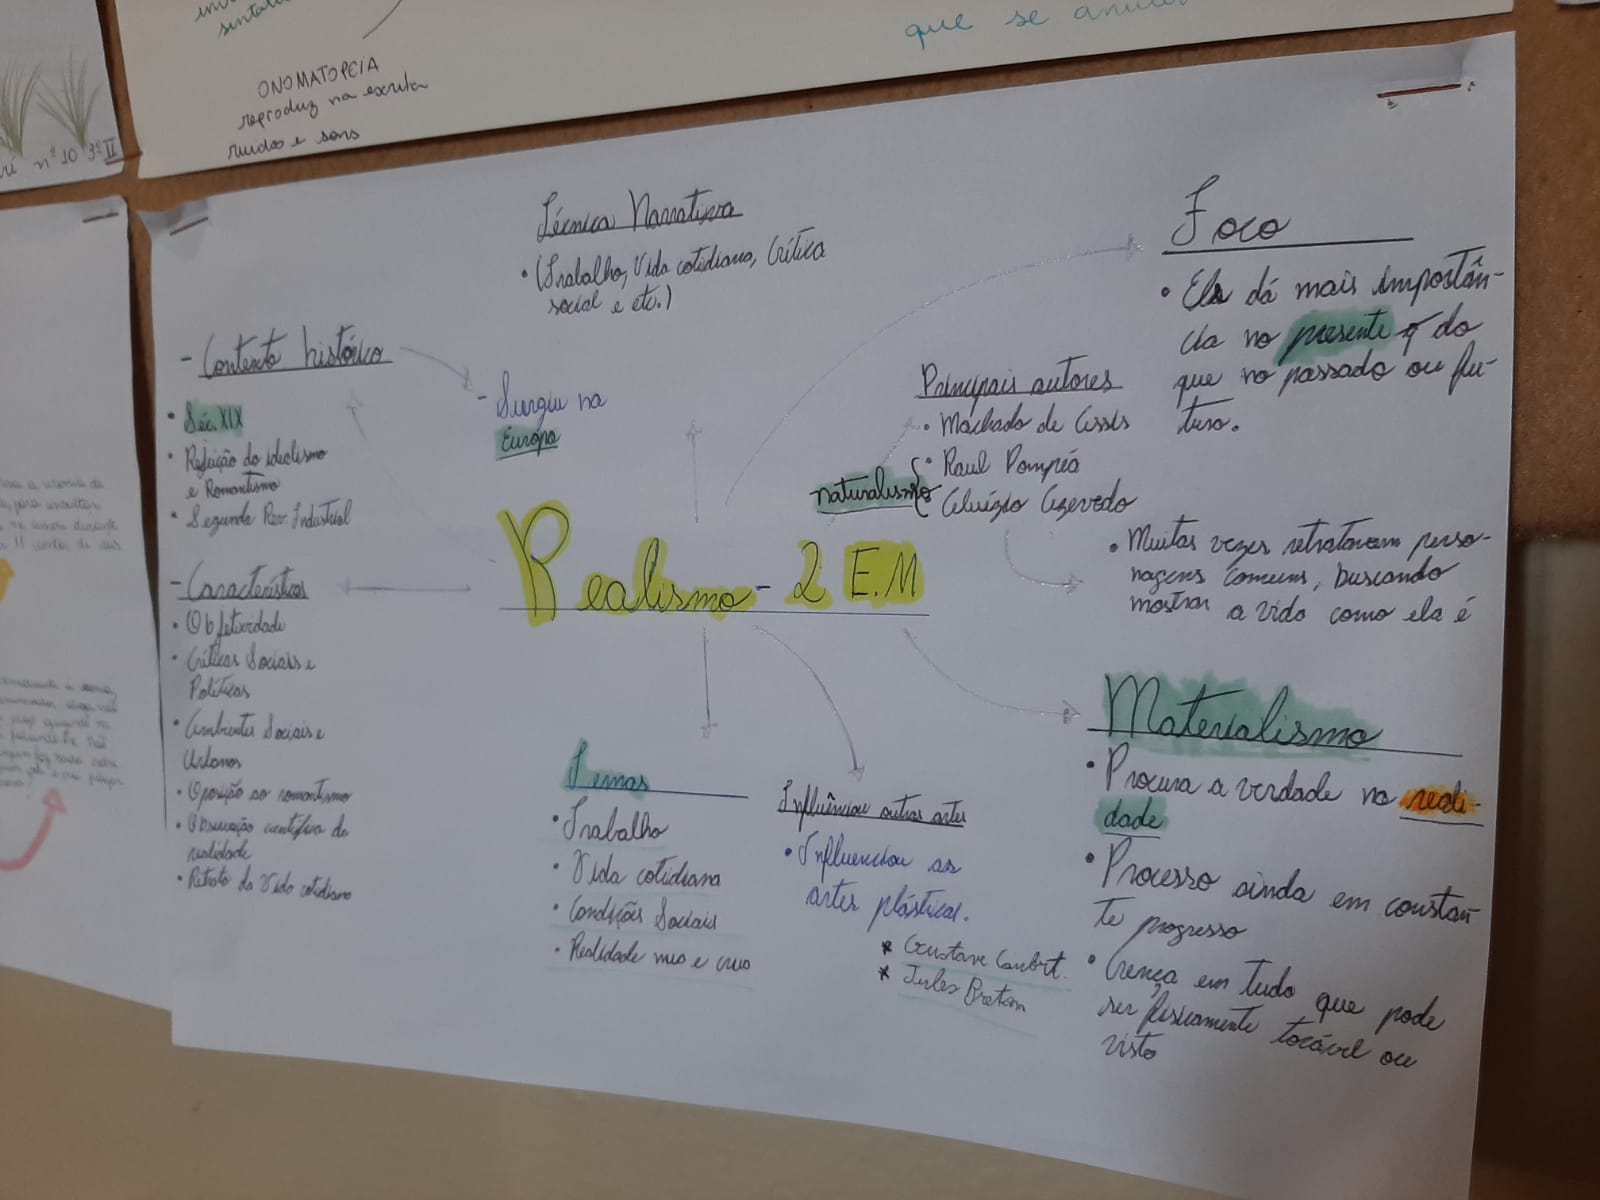 que se anula
ONOMATOPEIA
reproduz na escrita
ruídos e sons
nº 10 3º II
Técnica Narrativa
• (Trabalho, Vida cotidiana, Crítica
social e etc.)
- Contexto histórico
• Séc. XIX
• Rejeição do idealismo
e Romantismo
• Segunda Rev. Industrial
- Surgiu na
Europa
Foco
• Ela dá mais importân-
cia no presente do
que no passado ou fu-
turo.
Principais autores
• Machado de Assis
• Raul Pompéa
Aluízio Azevedo
naturalismo
• Muitas vezes retratavam perso-
nagens comuns, buscando
mostrar a vida como ela é
Realismo - 2 E.M
- Características
• Objetividade
• Críticas Sociais e
Políticas
• Ambientes Sociais e
Urbanos
• Oposição ao romantismo
• Observação científica da
realidade
• Retrato da Vida cotidiana
Temas
• Trabalho
• Vida cotidiana
• Condições Sociais
• Realidade nua e crua
Influênciou outras artes
• Influenciou as
artes plásticas.
* Gustave Coubert.
* Jules Breton
Materialismo
• Procura a verdade na reali-
dade
• Processo ainda em constan
te progresso
• Crença em tudo que pode
ser fisicamente tocável ou
visto